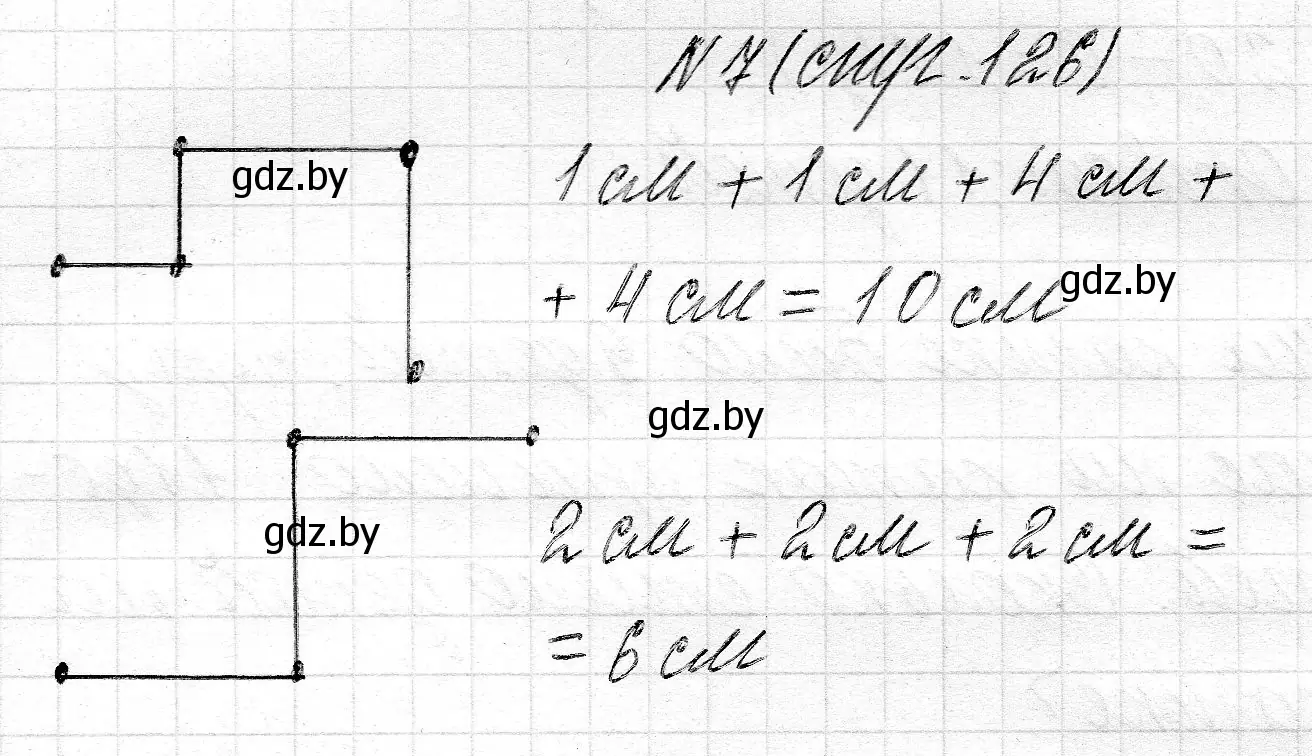 N 7 (стр. 126)
gdz.by
1 см + 1 см + 4 см +
+ 4 см = 10 см
gdz.by
gdz.by
gdz.by
2 см + 2 см + 2 см =
= 6 см